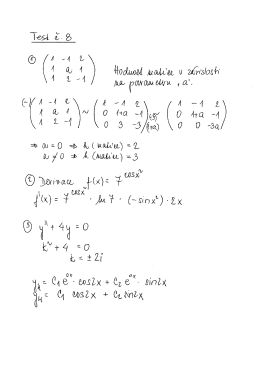 Test č. 8
① ( 1 -1 2
1 a 1
1 2 -1 ) Hodnost matice v závislosti
na parametru „a“.
(-1) ( 1 -1 2
1 a 1
1 2 -1 ) ~ ( 1 -1 2
0 1+a -1
0 3 -3 ) (-3) (1+a) ( 1 -1 2
0 1+a -1
0 0 -3a )
⇒ a = 0 ⇒ h (matice) = 2
a ≠ 0 ⇒ h (matice) = 3
② Derivace f(x) = 7^cosx²
f'(x) = 7^cosx² · ln 7 · (-sinx²) · 2x
③ y'' + 4y = 0
k² + 4 = 0
k = ± 2i
y_h = C₁ e^0x · cos2x + C₂ e^0x · sin2x
y_h = C₁ cos2x + C₂ sin2x